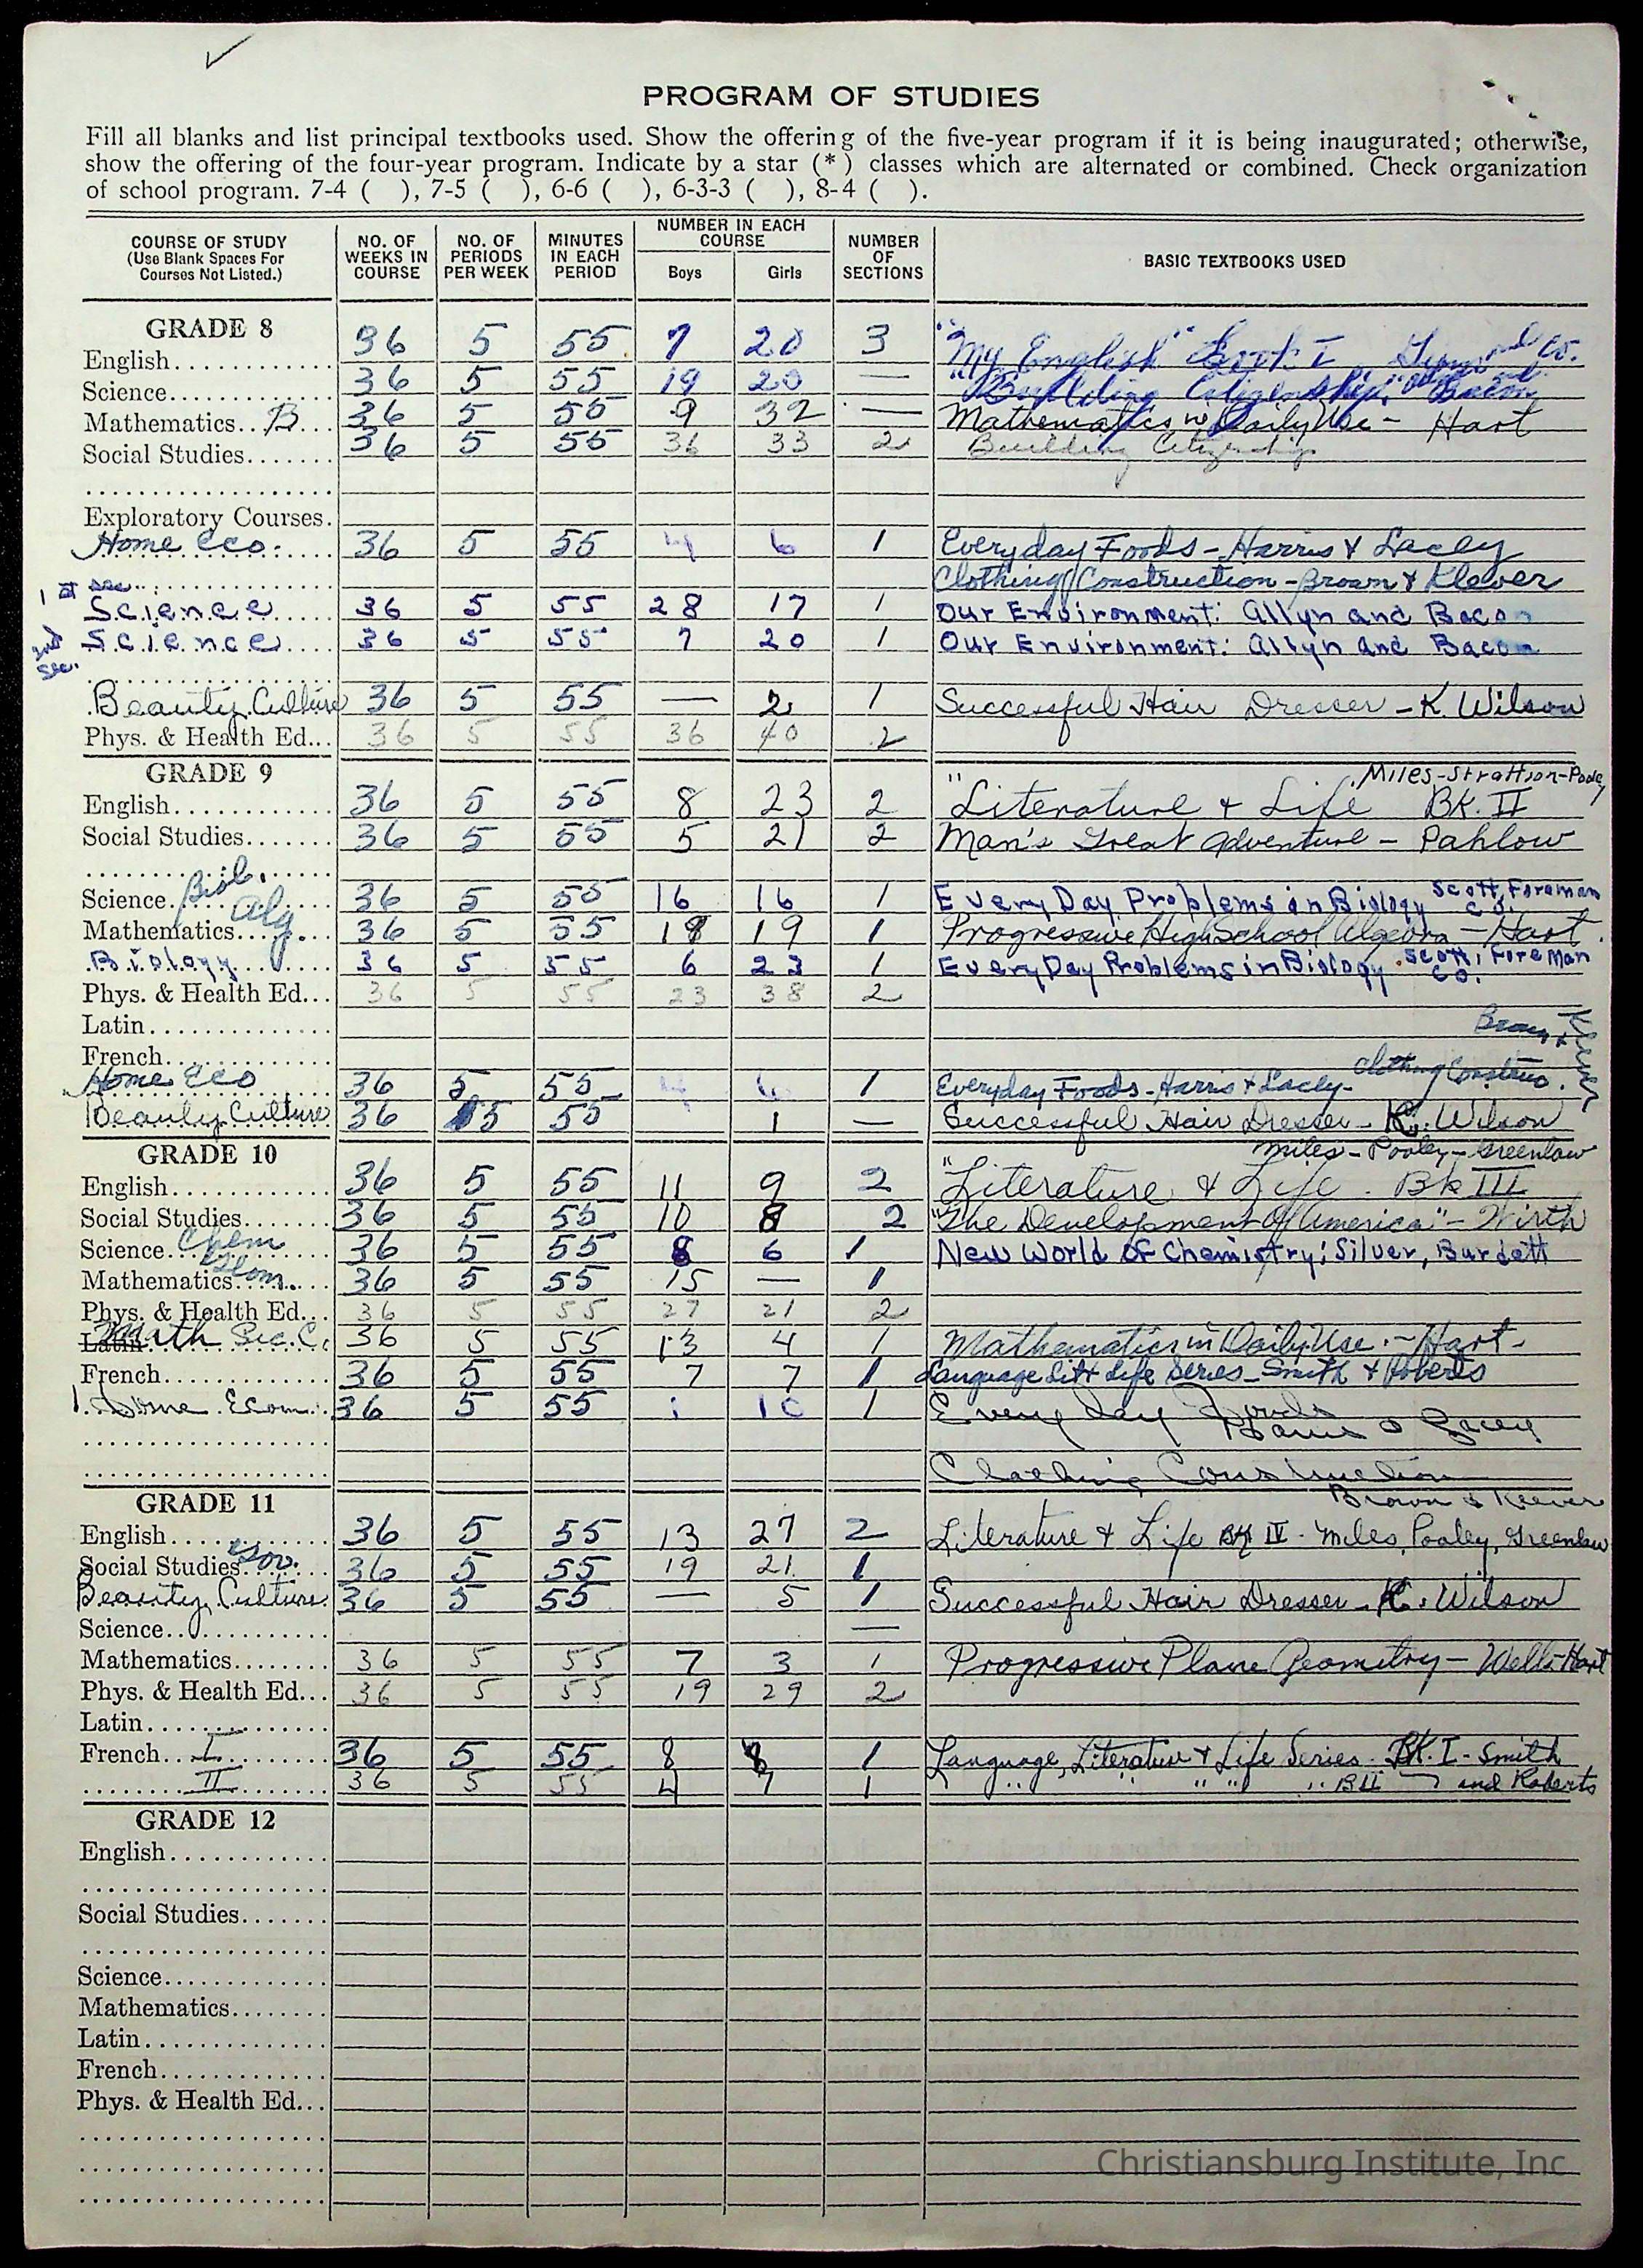 PROGRAM OF STUDIES
Fill all blanks and list principal textbooks used. Show the offering of the five-year program if it is being inaugurated; otherwise,
show the offering of the four-year program. Indicate by a star (*) classes which are alternated or combined. Check organization
of school program. 7-4 ( ), 7-5 ( ), 6-6 ( ), 6-3-3 ( ), 8-4 ( ).
COURSE OF STUDY (Use Blank Spaces For Courses Not Listed.) NO. OF WEEKS IN COURSE NO. OF PERIODS PER WEEK MINUTES IN EACH PERIOD NUMBER IN EACH COURSE Boys Girls NUMBER OF SECTIONS BASIC TEXTBOOKS USED
GRADE 8
English............ 36 5 55 7 20 3 "My English" Book I and Co.
Science............ 36 5 55 19 20 — "Building Citizenship" Bacon
Mathematics..B... 36 5 55 9 32 — Mathematics in Daily Use - Hart
Social Studies....... 36 5 55 36 33 2 Building Citizenship
Exploratory Courses.
Home Eco..... 36 5 55 4 6 1 Everyday Foods - Harris & Lacey
Clothing Construction - Brown & Klever
1 st sec.
Science 36 5 55 28 17 1 Our Environment: Allyn and Bacon
2nd sec. Science 36 5 55 7 20 1 Our Environment: Allyn and Bacon
Beauty Culture 36 5 55 — 2 1 Successful Hair Dresser - K. Wilson
Phys. & Health Ed... 36 5 55 36 40 2
GRADE 9
Miles-Stratton-Pooley
English............ 36 5 55 8 23 2 "Literature & Life BK. II
Social Studies....... 36 5 55 5 21 2 Man's Great Adventure - Pahlow
Science Biol. 36 5 55 16 16 1 Every Day Problems in Biology Scott, Foreman Co.
Mathematics.... Alg. 36 5 55 18 19 1 Progressive High School Algebra - Hart.
Biology 36 5 55 6 23 1 Every Day Problems in Biology. Scott, Foreman Co.
Phys. & Health Ed... 36 5 55 23 38 2
Latin...............
French..............
Home Eco 36 5 55 4 6 1 Everyday Foods - Harris & Lacey - Clothing Construc. Brown & Klever
Beauty Culture 36 5 55 1 — Successful Hair Dresser - K. Wilson
GRADE 10
Miles - Pooley - Greenlaw
English............ 36 5 55 11 9 2 "Literature & Life. Bk III
Social Studies....... 36 5 55 10 8 2 "The Development of America" - Wirth
Science.. Chem 36 5 55 8 6 1 New World of Chemistry: Silver, Burdett
Mathematics. Geom. 36 5 55 15 — 1
Phys. & Health Ed... 36 5 55 27 21 2
Latin Math Sec. C. 36 5 55 13 4 1 Mathematics in Daily Use. - Hart -
French............ 36 5 55 7 7 1 Language Lit & Life Series - Smith & Roberts
Home Econ. 36 5 55 1 10 1 Every day Foods Harris & Lacey
Clothing Construction
Brown & Klever
GRADE 11
English............ 36 5 55 13 27 2 Literature & Life BK IV - Miles, Pooley, Greenlaw
Social Studies. Gov. 36 5 55 19 21 1
Beauty Culture. 36 5 55 — 5 1 Successful Hair Dresser - K. Wilson
Science............ —
Mathematics........ 36 5 55 7 3 1 Progressive Plane Geometry - Wells-Hart
Phys. & Health Ed... 36 5 55 19 29 2
Latin...............
French...I......... 36 5 55 8 8 1 Language, Literature & Life Series. BK. I - Smith
II 36 5 55 4 7 1 " " " " " " BII and Roberts
GRADE 12
English............
Social Studies.......
Science.............
Mathematics........
Latin...............
French..............
Phys. & Health Ed...
Christiansburg Institute, Inc